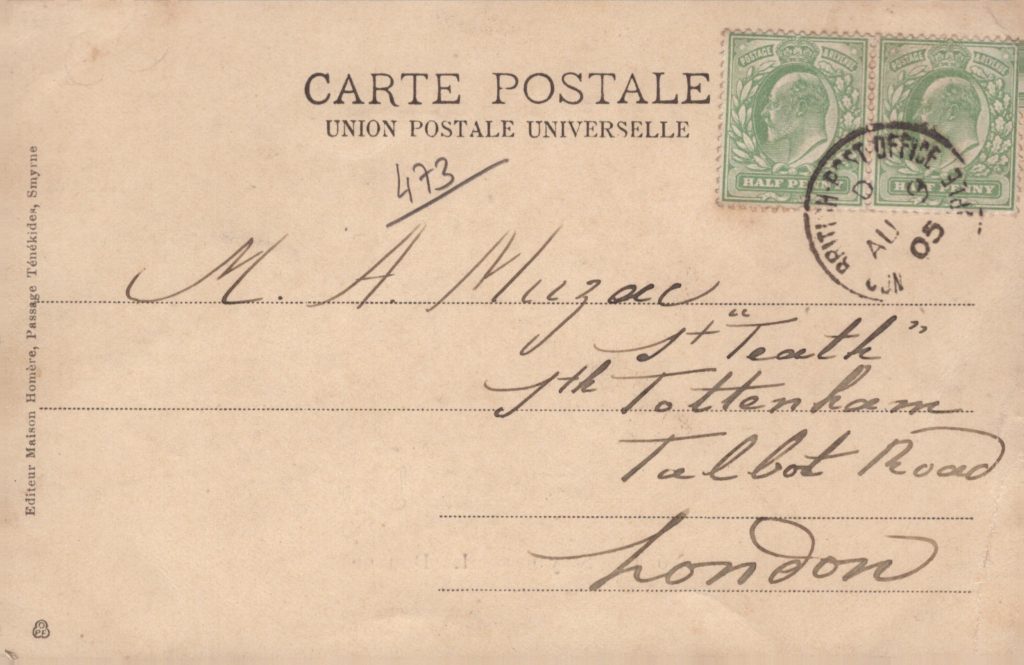 CARTE POSTALE
UNION POSTALE UNIVERSELLE
473
POSTAGE & REVENUE
HALF PENNY
POSTAGE & REVENUE
HALF PENNY
BRITISH POST OFFICE
AU 9
05
M. A. Muzac
St "Teath"
Sth Tottenham
Talbot Road
London
Editeur Maison Homère, Passage Ténékides, Smyrne